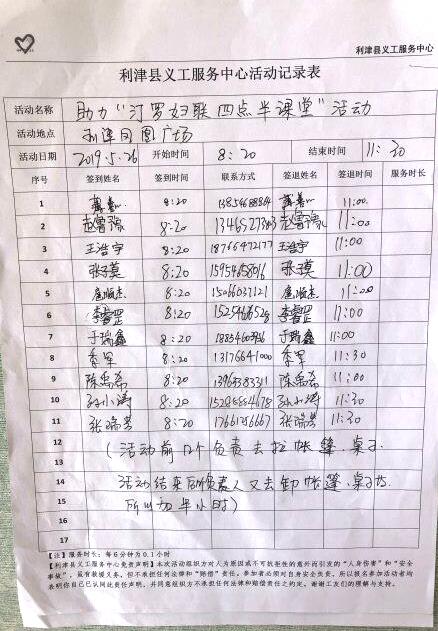 利津县义工服务中心
利津县义工服务中心活动记录表
活动名称 助力“汀罗妇联四点半课堂”活动
活动地点 利津凤凰广场
活动日期 2019.5.26 开始时间 8:20 结束时间 11:30
序号 签到姓名 签到时间 联系方式 签退姓名 签退时间 服务时长
1 8:20 11:00
2 8:20 11:00
3 王浩宇 8:20 18766472177 王浩宇 11:00
4 8:20 11:00
5 8:20 15066037121 11:00
6 8:20 11:00
7 于瑞鑫 8:20 于瑞鑫 11:00
8 季军 8:20 13176641000 季军 11:30
9 陈禹希 8:20 陈禹希 11:00
10 孙小涛 8:20 孙小涛 11:30
11 张瑞芳 8:20 17661256667 张瑞芳 11:30
12 (活动前几个负责去拉帐篷、桌子
13
14 活动结束后负责人又去卸帐篷、桌子
15 所以加半小时)
16
17
【注】服务时长：每6分钟为0.1小时
【利津县义工服务中心免责声明】本次活动组织方对人为原因或不可抗拒性的意外而引发的“人身伤害”和“安全
事故”，虽有救援义务，但不承担任何法律和“赔偿”责任。参加者必须对自身安全负责，所以报名参加活动者均
表明你自己已认同此责任声明，并同意组织方不承担任何法律和赔偿责任之约定。谢谢义工们的理解与支持。